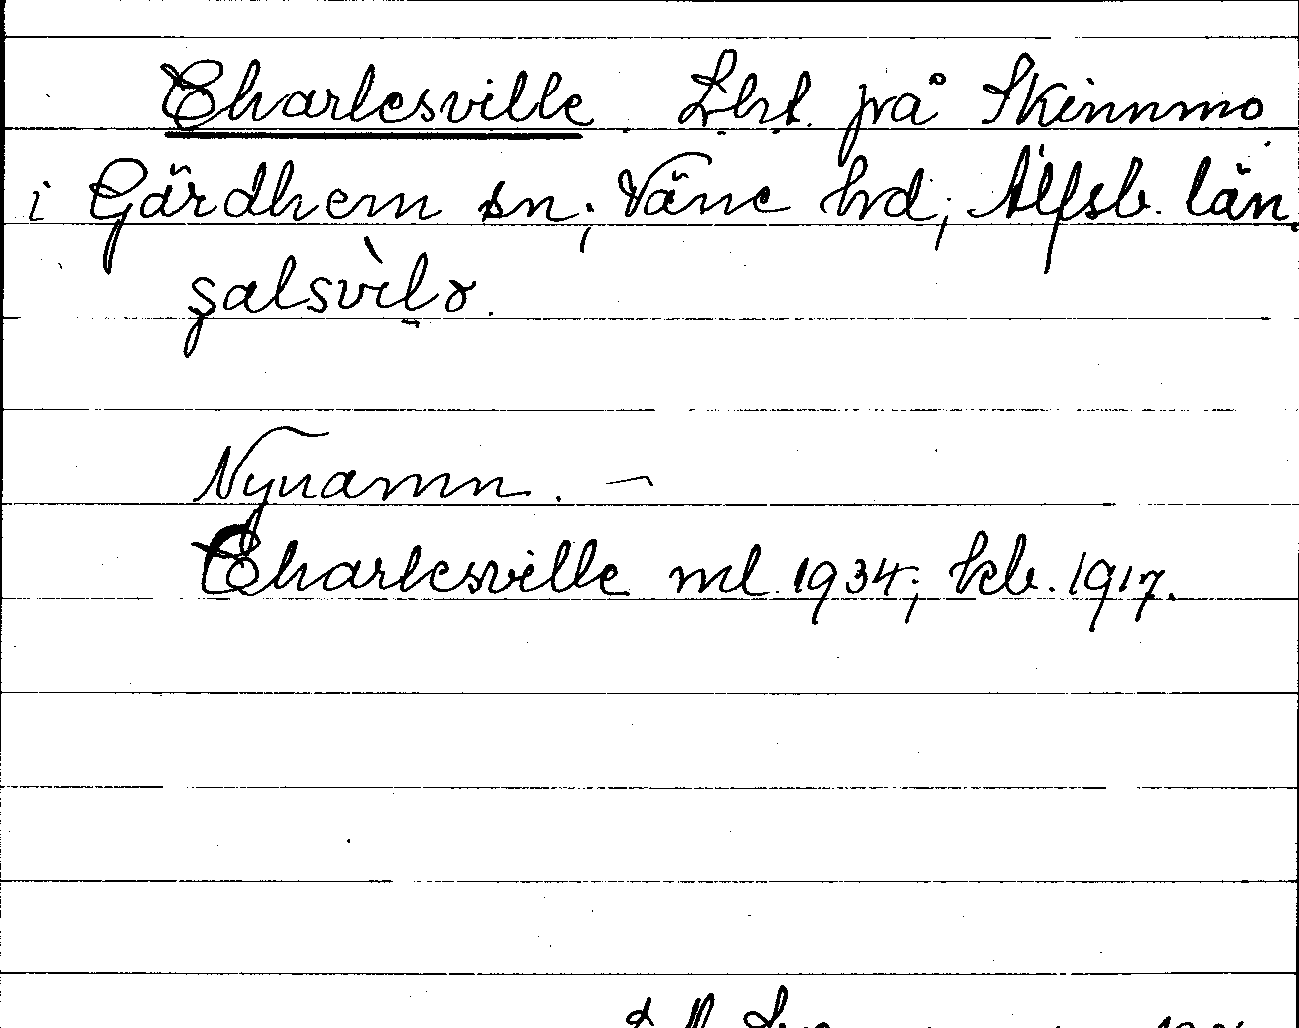 Charlesville. Lht. på Skinnmo
i Gärdhem sn; Väne hd; Älfsb. län.
șalsvìlɤ.
Nynamn. –
Charlesville ml. 1934; kb. 1917.